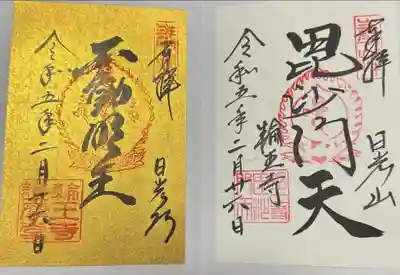 奉拝
日光山
不動明王
令和五年二月廿六日
奉拝
日光山
毘沙門天
輪王寺
令和五年二月廿六日